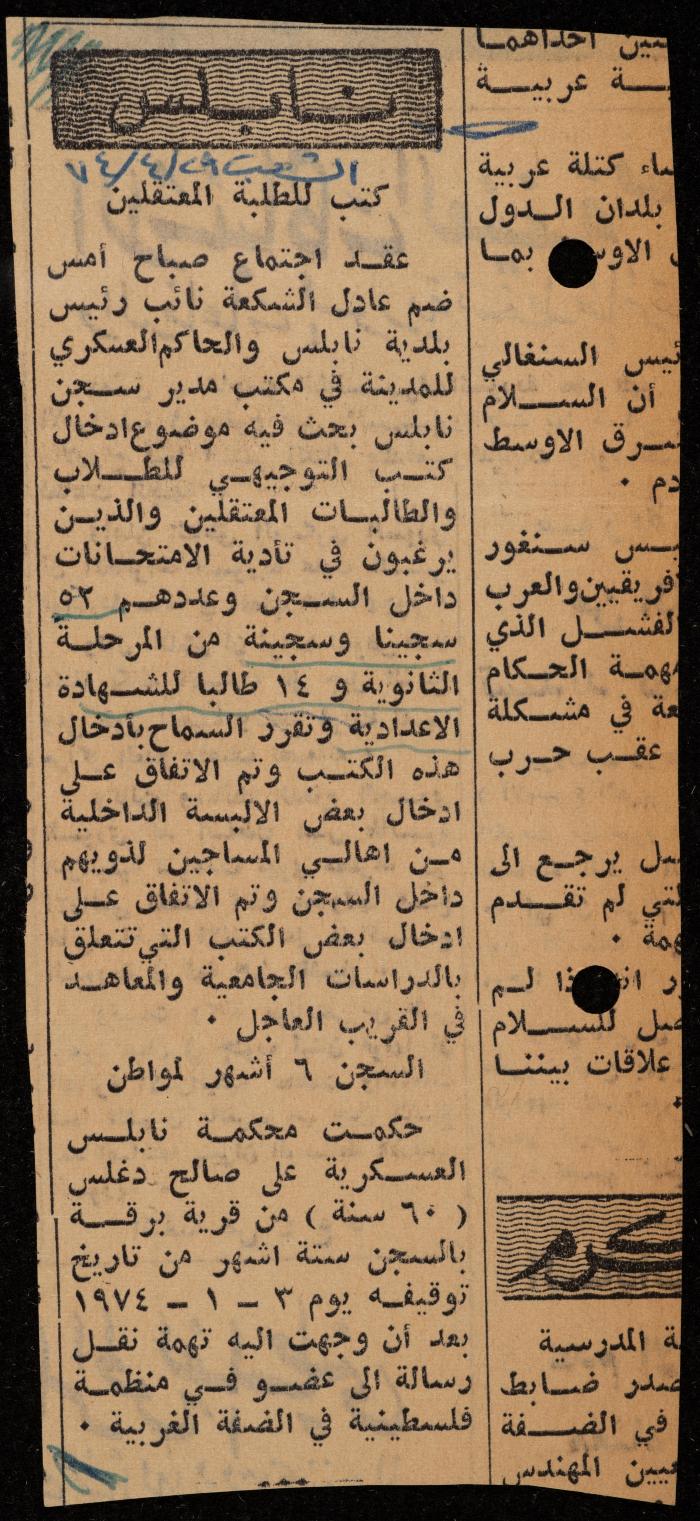 نابلس
الشعب ٢٩/٤/٧٤
كتب للطلبة المعتقلين
عقد اجتماع صباح أمس
ضم عادل الشكعة نائب رئيس
بلدية نابلس والحاكم العسكري
للمدينة في مكتب مدير سجن
نابلس بحث فيه موضوع ادخال
كتب التوجيهي للطلاب
والطالبات المعتقلين والذين
يرغبون في تأدية الامتحانات
داخل السجن وعددهم ٥٢
سجينا وسجينة من المرحلة
الثانوية و ١٤ طالبا للشهادة
الاعدادية وتقرر السماح بأدخال
هذه الكتب وتم الاتفاق على
ادخال بعض الالبسة الداخلية
من اهالي المساجين لذويهم
داخل السجن وتم الاتفاق على
ادخال بعض الكتب التي تتعلق
بالدراسات الجامعية والمعاهد
في القريب العاجل .
السجن ٦ أشهر لمواطن
حكمت محكمة نابلس
العسكرية على صالح دغلس
( ٦٠ سنة ) من قرية برقة
بالسجن ستة اشهر من تاريخ
توقيفه يوم ٣ - ١ - ١٩٧٤
بعد أن وجهت اليه تهمة نقل
رسالة الى عضو في منظمة
فلسطينية في الضفة الغربية .
احداهما
عربية
كتلة عربية
بلدان الدول
بما
السنغالي
أن السلام
الاوسط
سنغور
والعرب
الذي
الحكام
في مشكلة
عقب حرب
يرجع الى
لم تقدم
لم
للسلام
علاقات بيننا
كرم
المدرسية
ضابط
في الضفة
المهندس